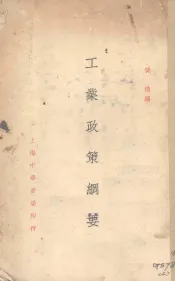 工業政策綱要
上海中華書局印行